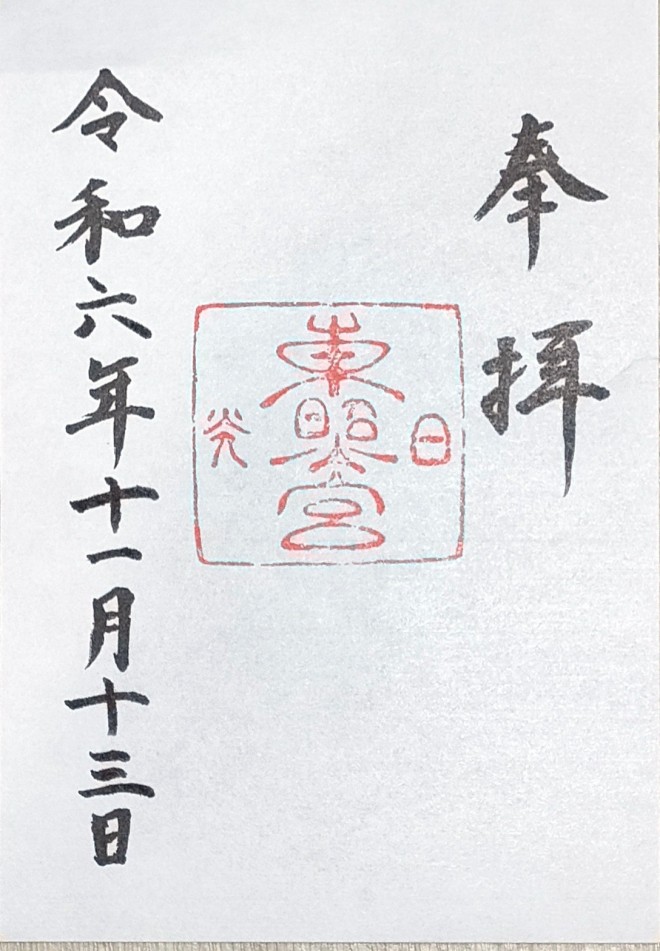 奉拝
日
東照宮
光
令和六年十一月十三日